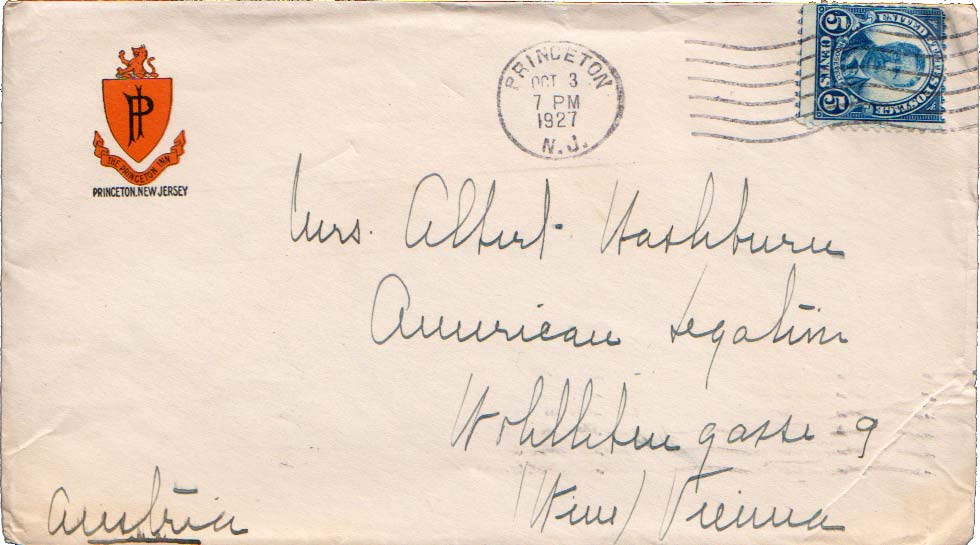 P
THE PRINCETON INN
PRINCETON, NEW JERSEY
PRINCETON
OCT 3
7 PM
1927
N.J.
UNITED STATES POSTAGE
5 CENTS 5
Mrs. Albert Washburn
American Legation
Wohllebengasse 9
(Wien) Vienna
Austria